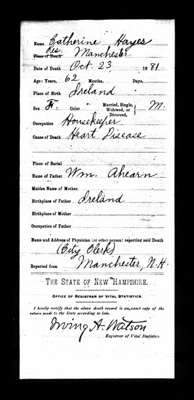 Name, Catherine Hayes
Res. Manchester
Date of Death Oct 23, 1881
Age: Years, 62 Months, Days,
Place of Birth Ireland
Sex F. Color Married, Single, Widowed, or Divorced, M.
Occupation Housekeeper
Cause of Death Heart Disease
Place of Burial
Name of Father Wm. Ahearn
Maiden Name of Mother,
Birthplace of Father Ireland
Birthplace of Mother
Occupation of Father
Name and Address of Physician (or other person) reporting said Death
(City Clerk)
Reported from Manchester, N.H
THE STATE OF NEW HAMPSHIRE.
OFFICE OF REGISTRAR OF VITAL STATISTICS.
I hereby certify that the above death record is an exact copy of the
return made to the State according to law.
Irving A. Watson
Registrar of Vital Statistics.